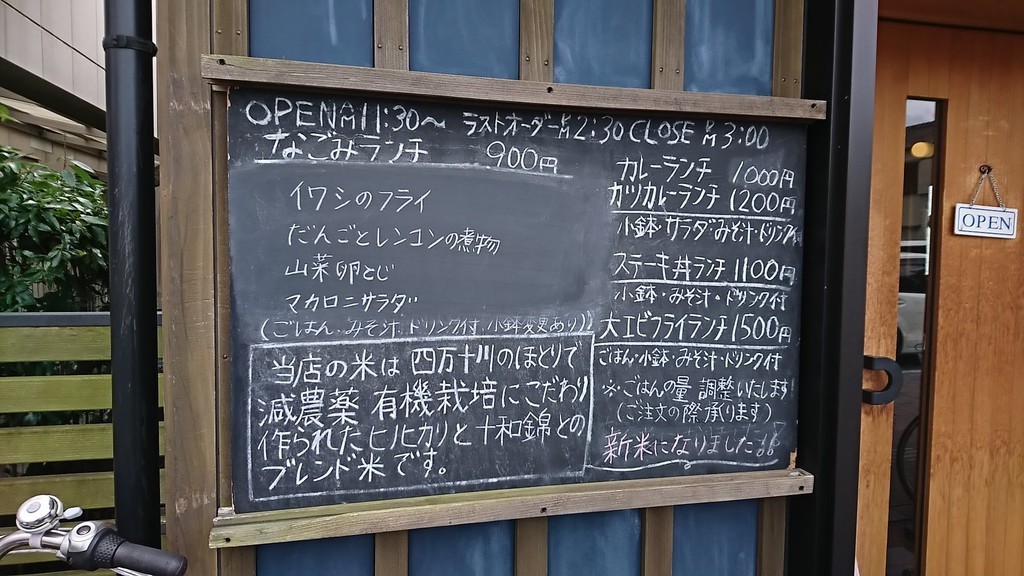 OPEN AM 11:30～ ラストオーダー PM 2:30 CLOSE PM 3:00
なごみランチ 900円
イワシのフライ
だんごとレンコンの煮物
山菜卵とじ
マカロニサラダ
(ごはん.みそ汁.ドリンク付.小鉢変更あり)
当店の米は四万十川のほとりで
減農薬有機栽培にこだわり
作られたヒノヒカリと十和錦との
ブレンド米です。
カレーランチ 1000円
カツカレーランチ 1200円
小鉢・サラダ・みそ汁・ドリンク付
ステーキ丼ランチ 1100円
小鉢・みそ汁・ドリンク付
大エビフライランチ 1500円
ごはん・小鉢・みそ汁・ドリンク付
※ごはんの量 調整いたします
(ご注文の際承ります)
新米になりました
OPEN